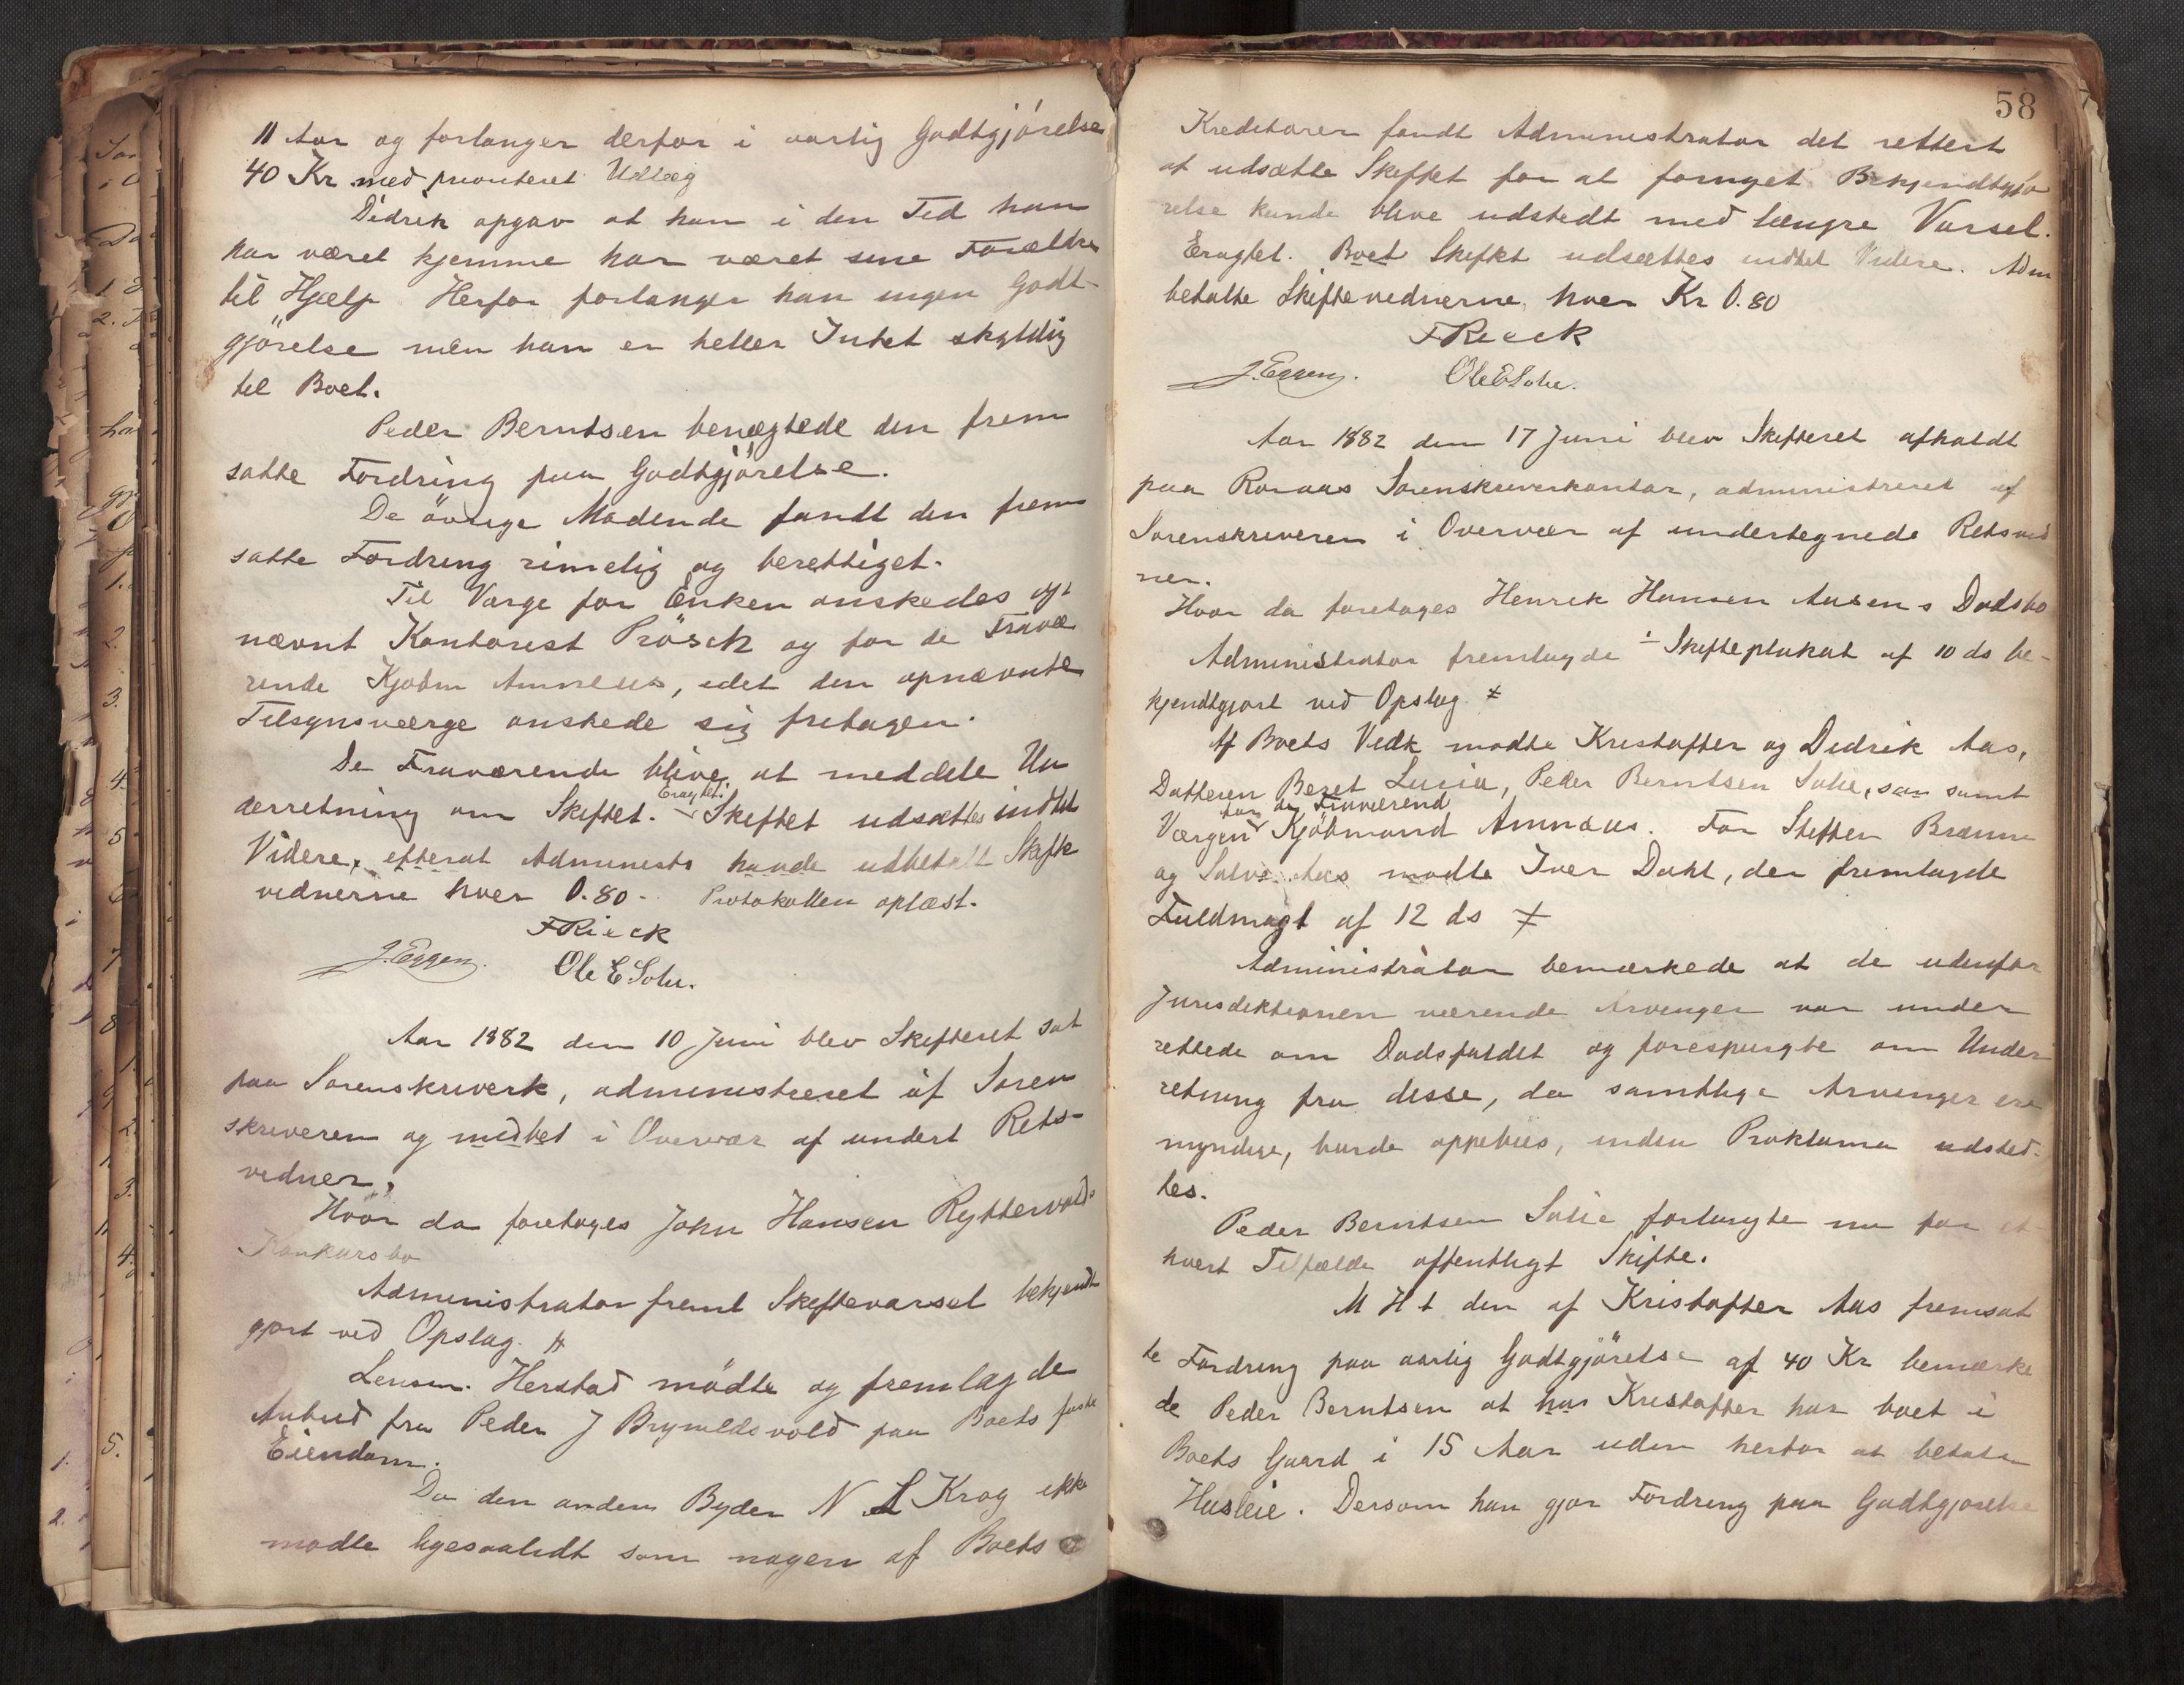 11 Aar og forlanger derfor i aarlig Godtgjörelse
40 Kr med prioriteret Udlæg
Didrik opgav at han i den Tid han
har været hjemme har været sine Forældre
til Hjælp. Herfor forlanger han ingen Godt-
gjörelse men han er heller Intet skyldig
til Boet.
Peder Berntsen benægtede den frem
satte Fordring paa Godtgjörelse.
De övrige Mödende fandt den frem
satte Fordring rimelig og berettiget.
Til Værge for Enken onskedes op
nævnt Kontorist Prösch og for de Fravæ
rende Kjobm Amneus, idet den opnævnte
Tilsynsværge onskede sig fritagen.
De Fraværende blive at meddele Un
derretning om Skiftet. Eragtet: Skiftet udsættes indtil
Videre, efterat Administr havde udbetalt Skifte
vidnerne hver 0.80 - Protokollen oplæst.
FRieck
J. Eggen. Ole E Solie.
Aar 1882 den 10 Juni blev Skifteret sat
paa Sorenskriverk, administreret af Soren
skriveren og i Overvær af undert Rets-
vidner.
Hvor da foretages John Hansen Ryttervolds
Konkursbo
Administrator freml Skiftevarsel bekjendt
gjort ved Opslag. #
Lensm. Herstad mödte og fremlagde
Anbud fra Peder J Brynildsvold paa Boets faste
Eiendom.
Da den anden Byder N L Krog ikke
modte ligesaalidt som nogen af Boets
58
Kreditorer fandt Administrator det rettest
at udsætte Skiftet for at fornyet Bekjendtgjö
relse kunde blive udstedt med længre Varsel.
Eragtet. Boet Skiftet udsættes indtil Videre. Adm
betalte Skiftevidnerne hver Kr 0.80
FRieck
J. Eggen. Ole E Solie.
Aar 1882 den 17 Juni blev Skifteret afholdt
paa Roraas Sorenskriverkontor, administreret af
Sorenskriveren i Overvær af undertegnede Retsvid
ner.
Hvor da foretages Henrik Hansen Aasens Dodsbo
Administrator fremlagde Skifteplakat af 10 ds be-
kjendtgjort ved Opslag #
Af Boets Vedk modte Kristoffer og Didrik Aas,
Datteren Beret Lucia, Peder Berntsen Solie, samt
for de Fraværend
Værgen Kjöbmand Amnæus. For Steffen Brænne
og Aas modte Iver Dahl, der fremlagde
Fuldmagt af 12 ds #
Administrator bemærkede at de udenfor
Jurisdiktionen værende Arvinger var under
rettede om Dodsfaldet og forespurgte om Under
retning fra disse, da samtlige Arvinger ere
myndige, burde oppebies, inden Proklama udsted-
tes.
Peder Berntsen Solie forlangte nu for et
hvert Tilfælde offentligt Skifte.
M H t den af Kristoffer Aas fremsat
te Fordring paa aarlig Godtgjörelse af 40 Kr bemærke
de Peder Berntsen at har Kristoffer har boet i
Boets Gaard i 15 Aar uden herfor at betale
Husleie. Dersom han gjor Fordring paa Godtgjorelse